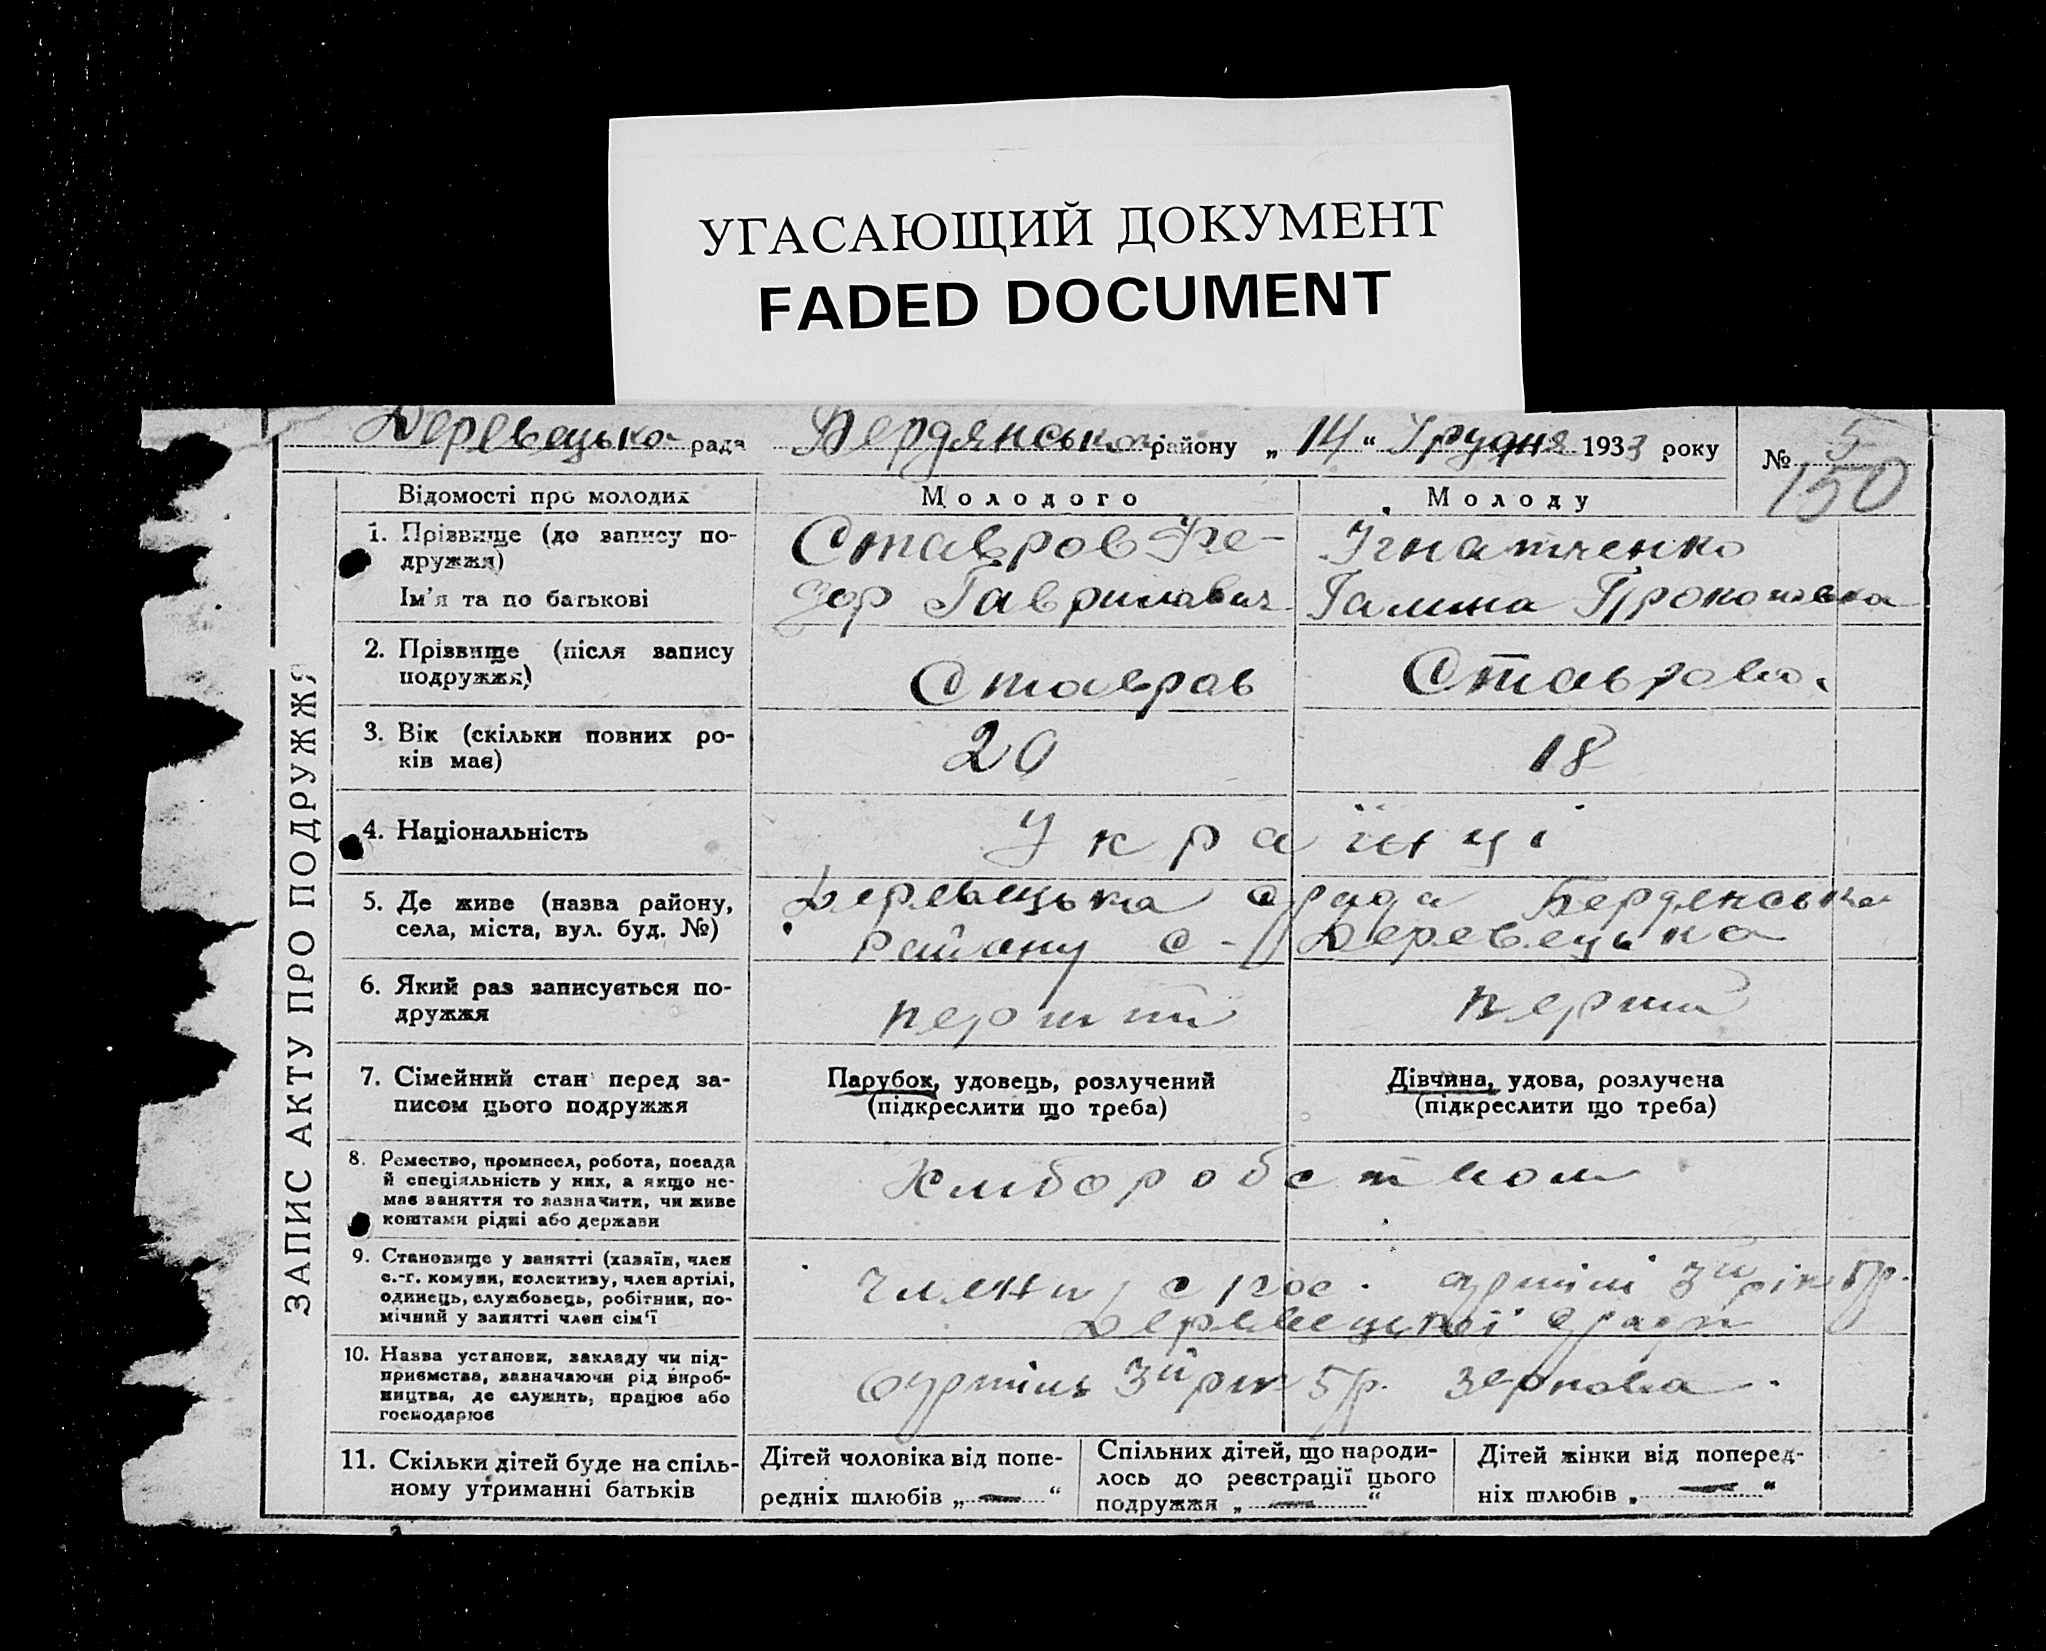 УГАСАЮЩИЙ ДОКУМЕНТ
FADED DOCUMENT
Деревецька рада Бердянського району „14“ Грудня 1933 року № 5
150
ЗАПИС АКТУ ПРО ПОДРУЖЖЯ
Відомості про молодих Молодого Молоду
1. Прізвище (до запису по-
дружжя)
Ім'я та по батькові
Ставров Фе-
дор Гаврилович
Ігнатченко
Галина Прокоповна
2. Прізвище (після запису
подружжя)
Ставров
Ставрова.
3. Вік (скільки повних ро-
ків має)
20
18
4. Національність
Українці
5. Де живе (назва району,
села, міста, вул. буд. №)
Деревецька с/рада Бердянська
району с- Деревецька
6. Який раз записується по-
дружжя
перший
перший
7. Сімейний стан перед за-
писом цього подружжя
Парубок, удовець, розлучений
(підкреслити що треба)
Дівчина, удова, розлучена
(підкреслити що треба)
8. Ремество, промисел, робота, посада
й спеціяльність у них, а якщо не-
має заняття то зазначити, чи живе
коштами рідні або держави
9. Становище у занятті (хазяїн, член
с.-г. комуни, колективу, член артілі,
одинець, службовець, робітник, по-
мічний у занятті член сім'ї
Члени с гос. артілі 3й рік 5р.
Деревецької с/ради
10. Назва установи, закладу чи під-
приємства, зазначаючи рід вироб-
ництва, де служить, працює або
господарює
артіль 3й рік 5р. зернова.
11. Скільки дітей буде на спіль-
ному утриманні батьків
Дітей чоловіка від попе-
редніх шлюбів „—“
Спільних дітей, що народи-
лось до реєстрації цього
подружжя „—“
Дітей жінки від поперед-
ніх шлюбів „—“